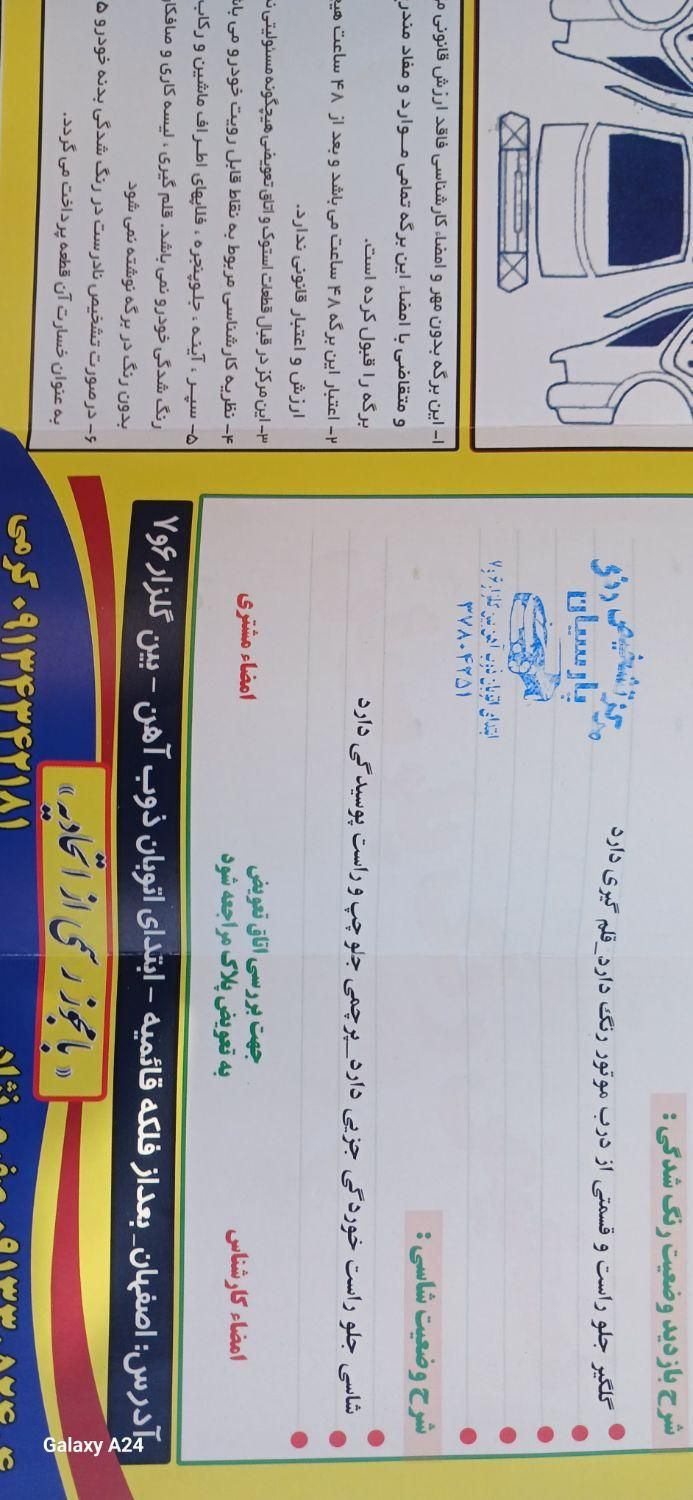 شرح بازدید وضعیت رنگ شدگی :
گلگیر جلو راست و قسمتی از درب موتور رنگ دارد_قلم گیری دارد
مرکز تشخیص رنگ
پارسیان
ابتدای اتوبان ذوب آهن بین گلزار ۶و۷
۳۷۸۰۴۲۵۱
شرح وضعیت شاسی :
شاسی جلو راست خوردگی جزیی دارد_پرچمی جلو چپ و راست پوسیدگی دارد
امضاء کارشناس
جهت بررسی اتاق تعویض
به تعویض پلاک مراجعه شود
امضاء مشتری
آدرس: اصفهان_ بعداز فلکه قائمیه - ابتدای اتوبان ذوب آهن - بین گلزار ۶و۷
« با مجوز رسمی از اتحادیه »
۰۹۱۳۴۳۳۴۲۱۸۱ کرمی
۱- این برگه بدون مهر و امضاء کارشناسی فاقد ارزش قانونی
و متقاضی با امضاء این برگه تمامی مـوارد و مفاد
برگه را قبول کرده است.
۲- اعتبار این برگه ۴۸ ساعت می باشد و بعد از ۴۸ ساعت
ارزش و اعتبار قانونی ندارد.
۳- این مرکز در قبال قطعات استوک و اتاق تعویضی هیچگونه مسئولیتی
۴- نظریه کارشناسی مربوط به نقاط قابل رویت خودرو می
۵- سپـر ، آینـه ، جلوپنجره ، فلاپهای اطـراف ماشین و رکاب
رنگ شدگی خودرو نمی باشد. قلم گیری ، لیسه کاری و
بدون رنگ در برگه نوشته نمی شود
۶- در صورت تشخیص نادرست در رنگ شدگی بدنه خودرو ۵
به عنوان خسارت آن قطعه پرداخت می گردد.
Galaxy A24